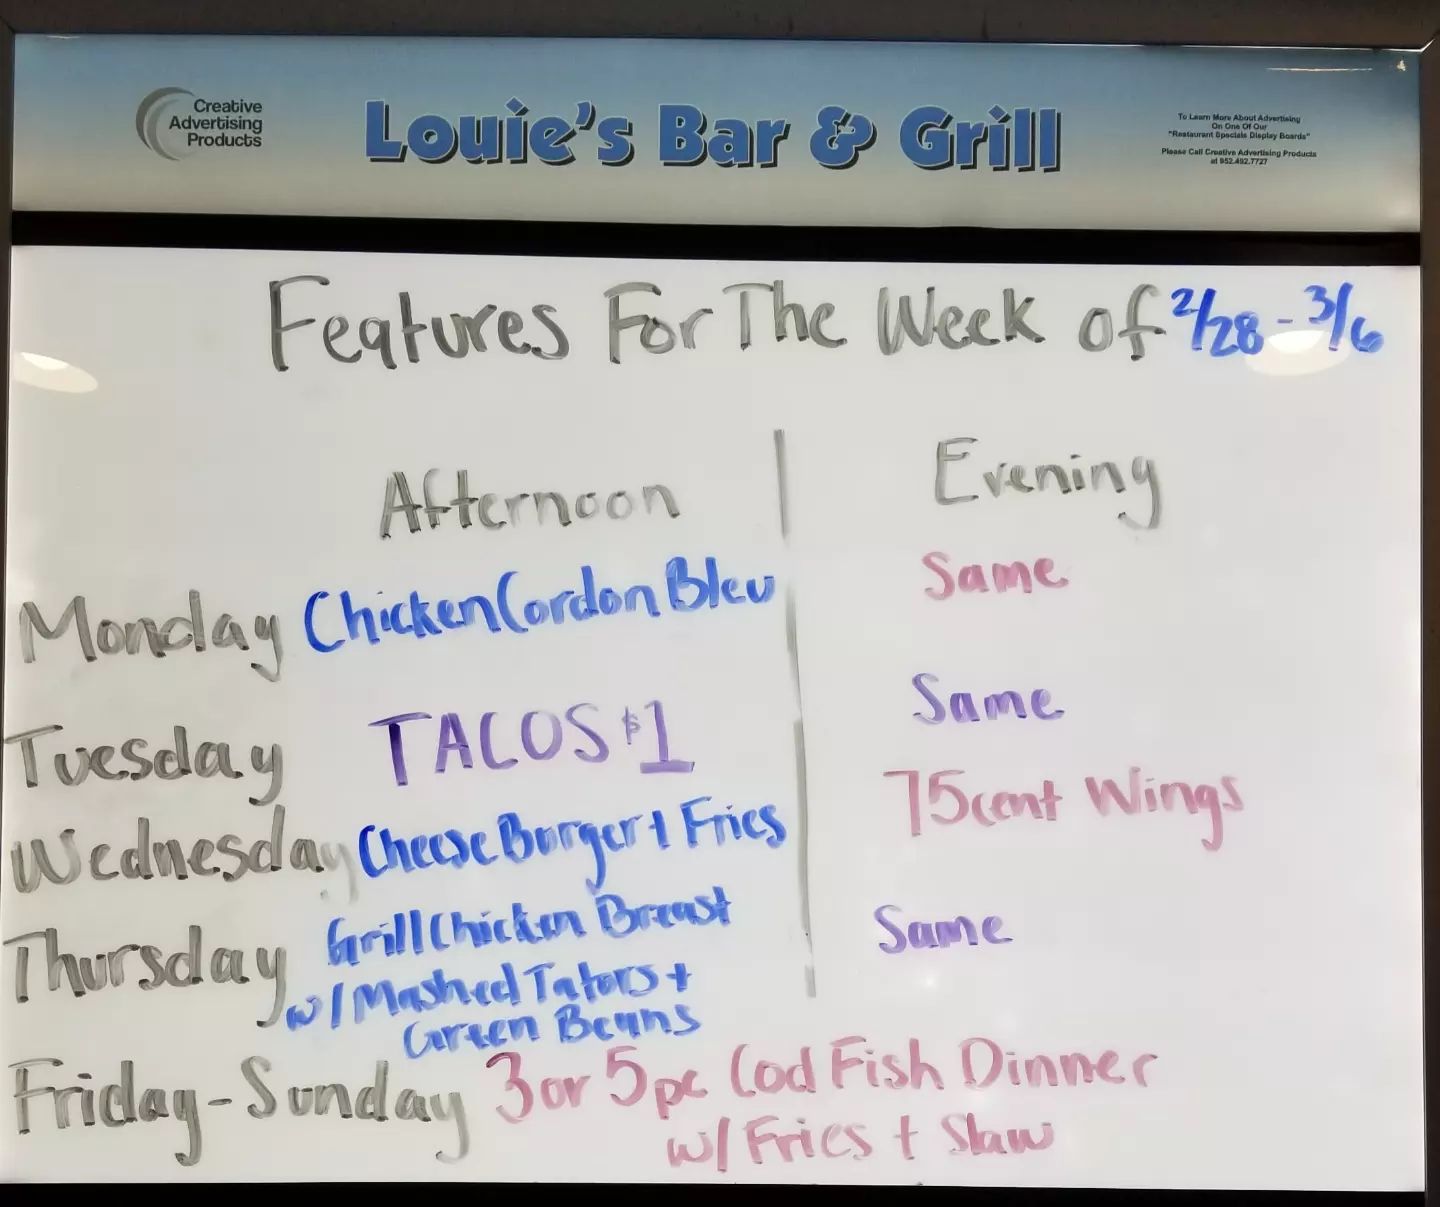 Creative
Advertising
Products
Louie's Bar & Grill
To Learn More About Advertising
On One Of Our
"Restaurant Specials Display Boards"
Please Call Creative Advertising Products
at 952.492.7727
Features For The Week of 2/28 - 3/6
Afternoon | Evening
Monday Chicken Cordon Bleu Same
Tuesday TACOS $1 Same
Wednesday Cheese Burger + Fries 75cent Wings
Thursday Grill Chicken Breast Same
w/ Mashed Tators +
Green Beans
Friday - Sunday 3 or 5 pc Cod Fish Dinner
w/ Fries + Slaw